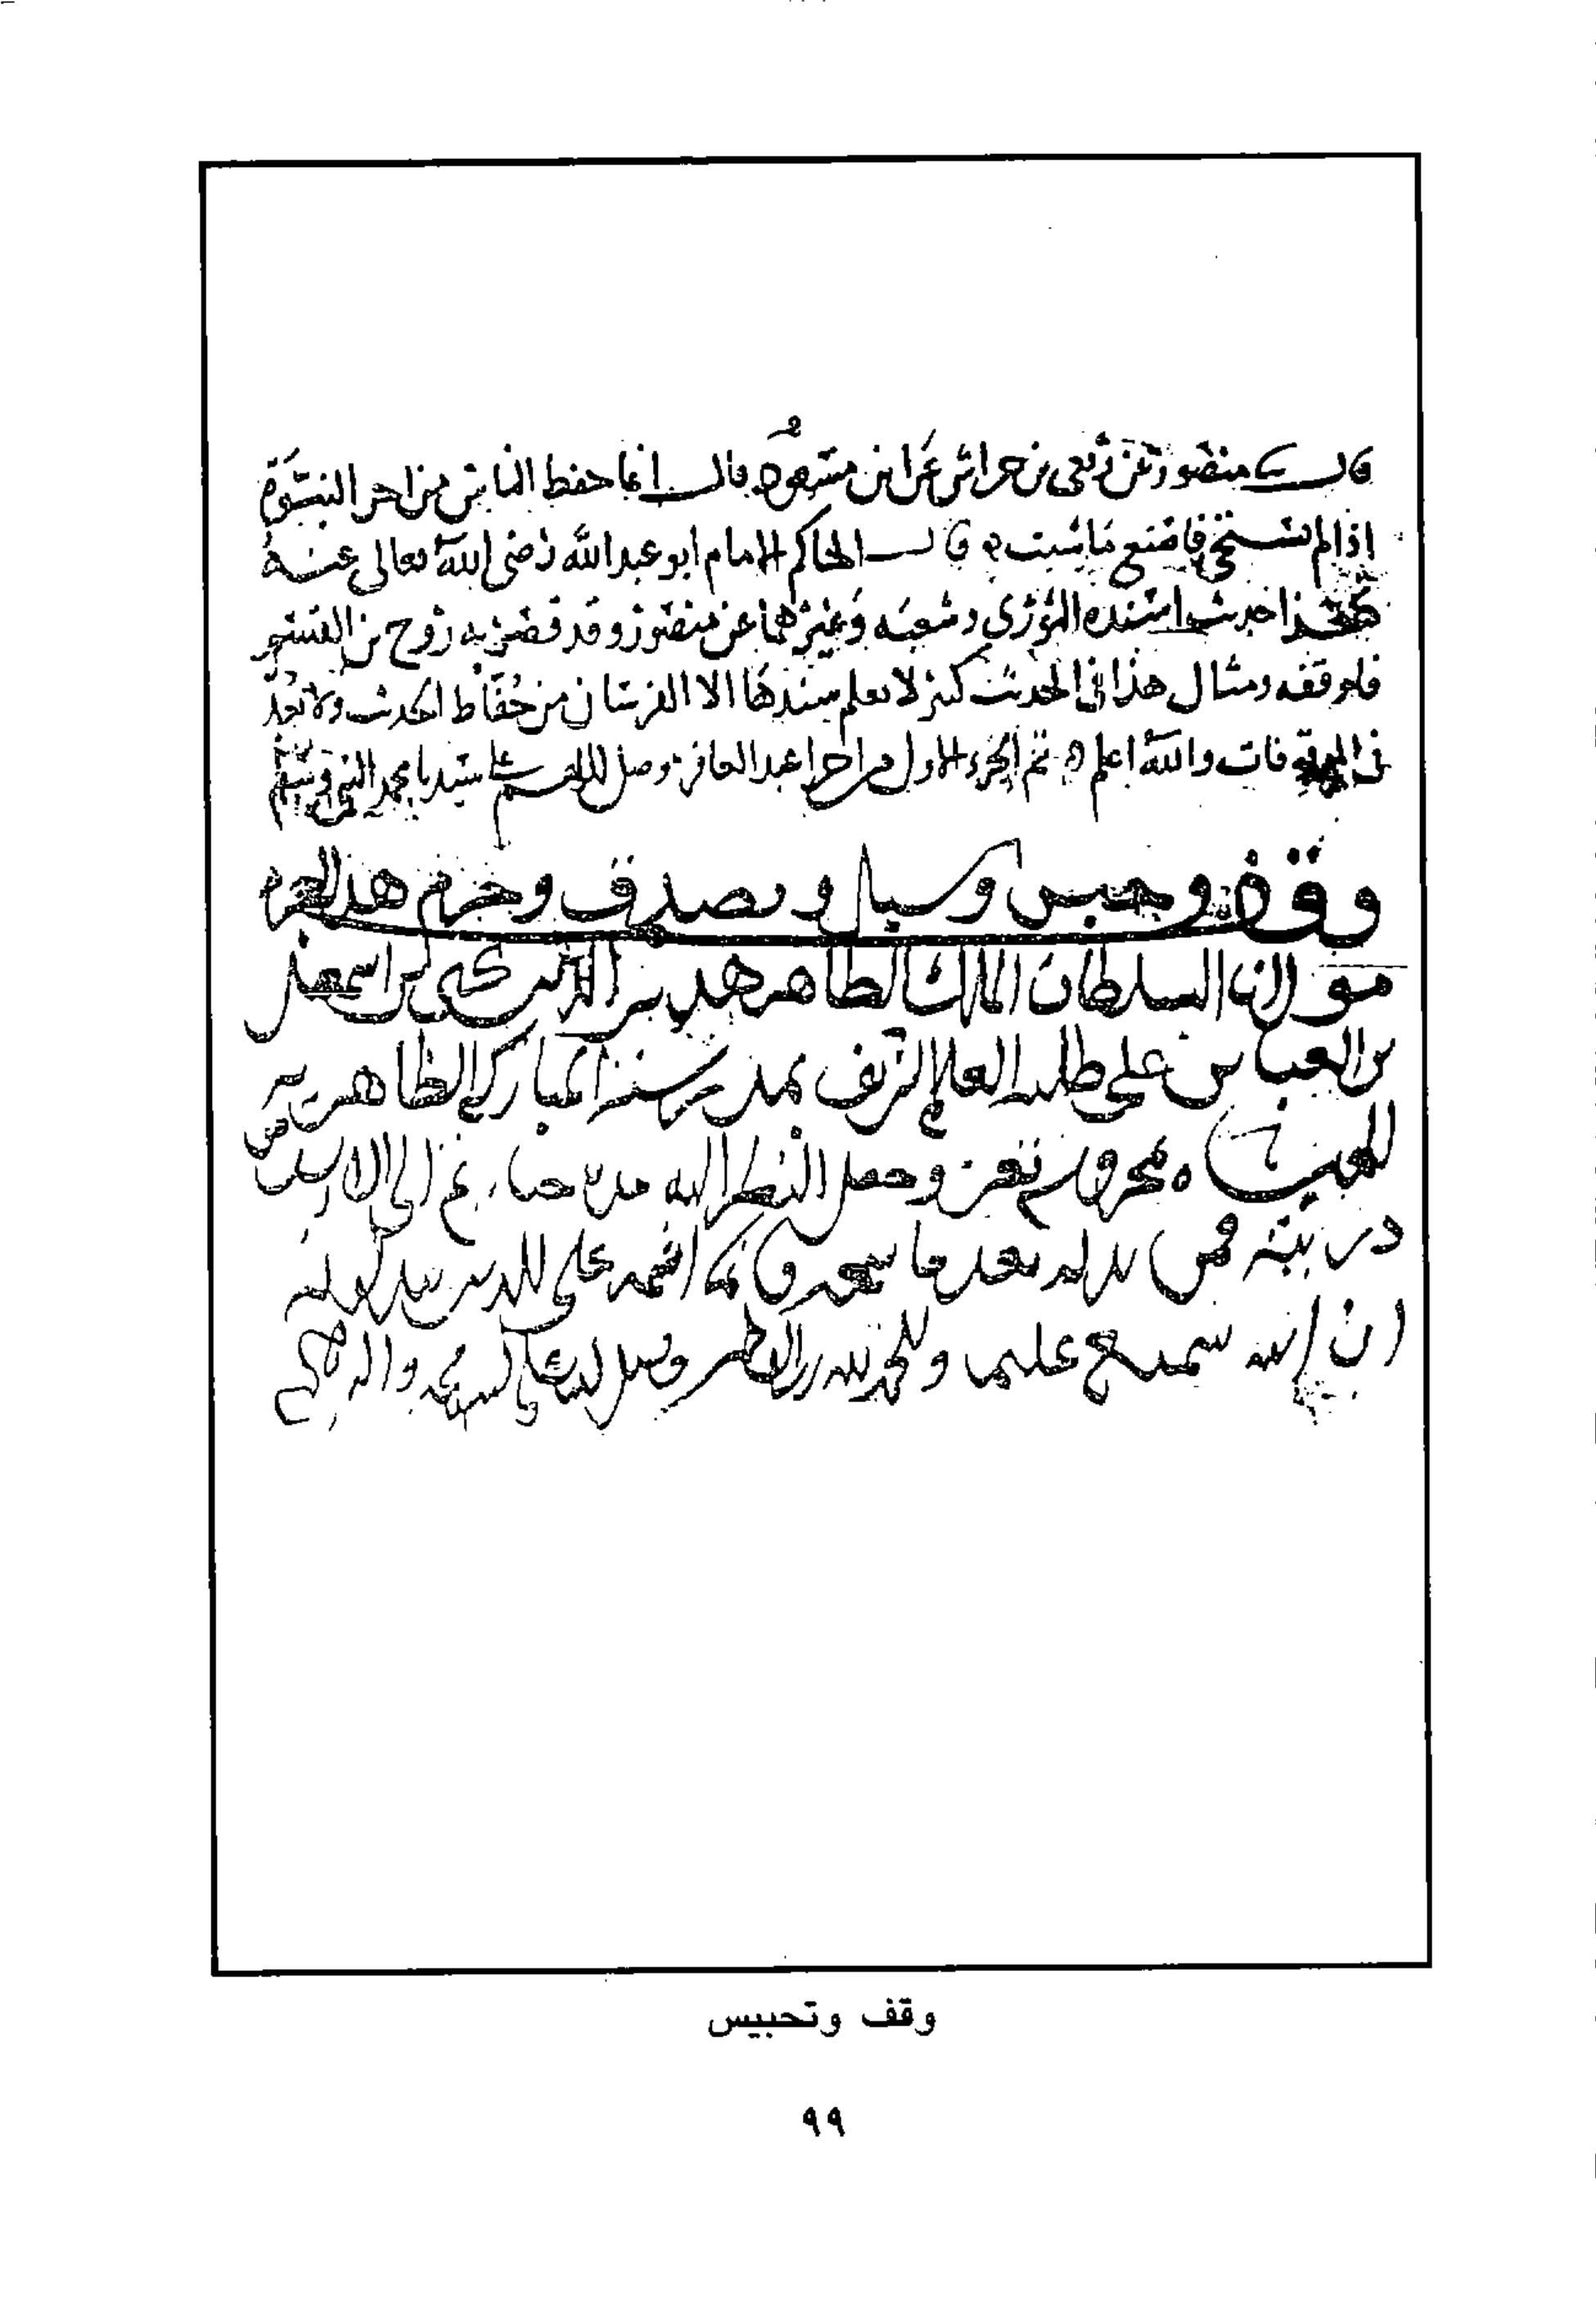 قال منصور عن ربعي بن حراش عن ابن مسعود قال انما حفظ الناس من اخر النبوة
اذا لم تستحي فاصنع ما شيت قال الحاكم الامام ابو عبدالله رضي الله تعالى عنه
هذا حديث اسنده الثوري وشعبه وغيرهما عن منصور وقد قصر به روح بن القسم
فاوقفه ومثال هذا في الحديث كثير لا يعلم سندها الا الفرسان من حفاظ الحديث ولا تعد
في الموقوفات والله اعلم تم الجزء الاول من اجزا عبد الغافر وصلى الله على سيدنا محمد النبي وسلم
وقف وحبس وسبل وتصدق وحرم هذا الجزء
مولانا السلطان الملك الظاهر هزبر الدين يحيى بن اسمعيل
بن العباس على طلبة العلم الشريف بمدرسته المباركة الظاهرية
بمحروس تعز وجعل النظر اليه مدة حياته ثم الى الارشد
من ذريته فمن بدله بعد ما سمعه فانما اثمه على الذين يبدلونه
ان الله سميع عليم والحمد لله رب العالمين وصلى الله على سيدنا محمد واله
وقف وتحبيس
٩٩